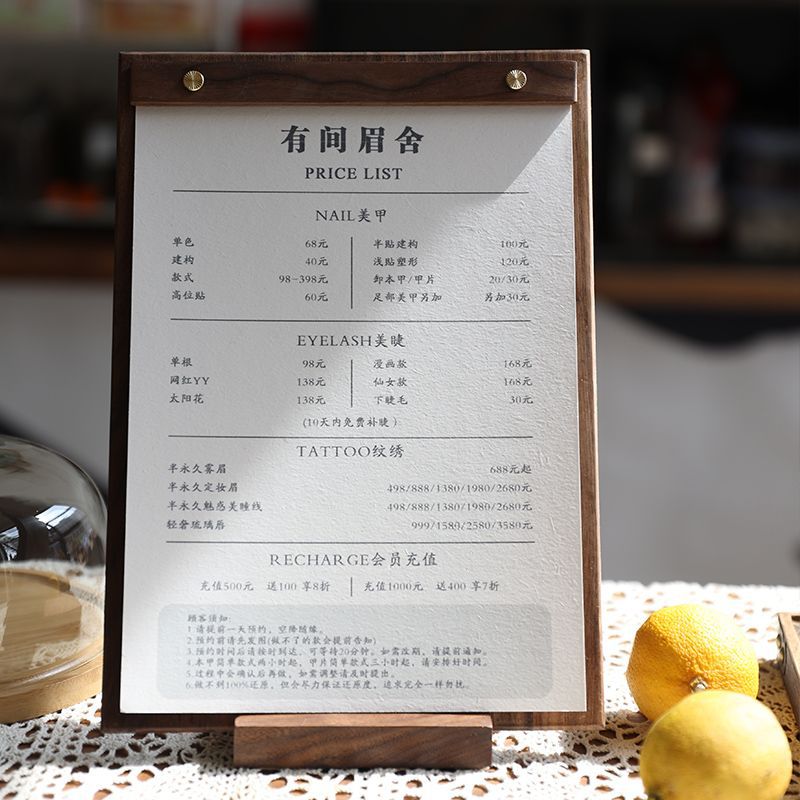 有间眉舍
PRICE LIST
NAIL美甲
单色 68元 半贴建构 100元
建构 40元 浅贴塑形 120元
款式 98-398元 卸本甲/甲片 20/30元
高位贴 60元 足部美甲另加 另加30元
EYELASH美睫
单根 98元 漫画款 168元
网红YY 138元 仙女款 168元
太阳花 138元 下睫毛 30元
(10天内免费补睫)
TATTOO纹绣
半永久雾眉 688元起
半永久定妆眉 498/888/1380/1980/2680元
半永久魅惑美瞳线 498/888/1380/1980/2680元
轻奢琉璃唇 999/1580/2580/3580元
RECHARGE会员充值
充值500元 送100 享8折 充值1000元 送400 享7折
顾客须知:
1.请提前一天预约，空降随缘。
2.预约前请先发图(做不了的款会提前告知)
3.预约时间后请按时到达，可等待20分钟。如需改期，请提前通知。
4.本甲简单款式两小时起，甲片简单款式三小时起，请安排好时间。
5.过程中会确认后再做，如需调整请及时提出。
6.做不到100%还原，但会尽力保证还原度，追求完全一样勿扰。